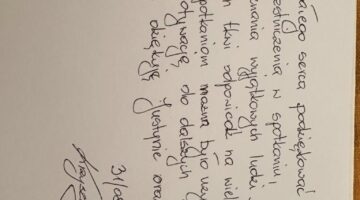 ałego serca podziękować
estniczenia w spotkaniu!
mania wyjątkowych ludzi
tkwi odpowiedź na wiel
potkaniom można było uzy
otywację, do dalszych
dziękuję Justynie oraz
31/08